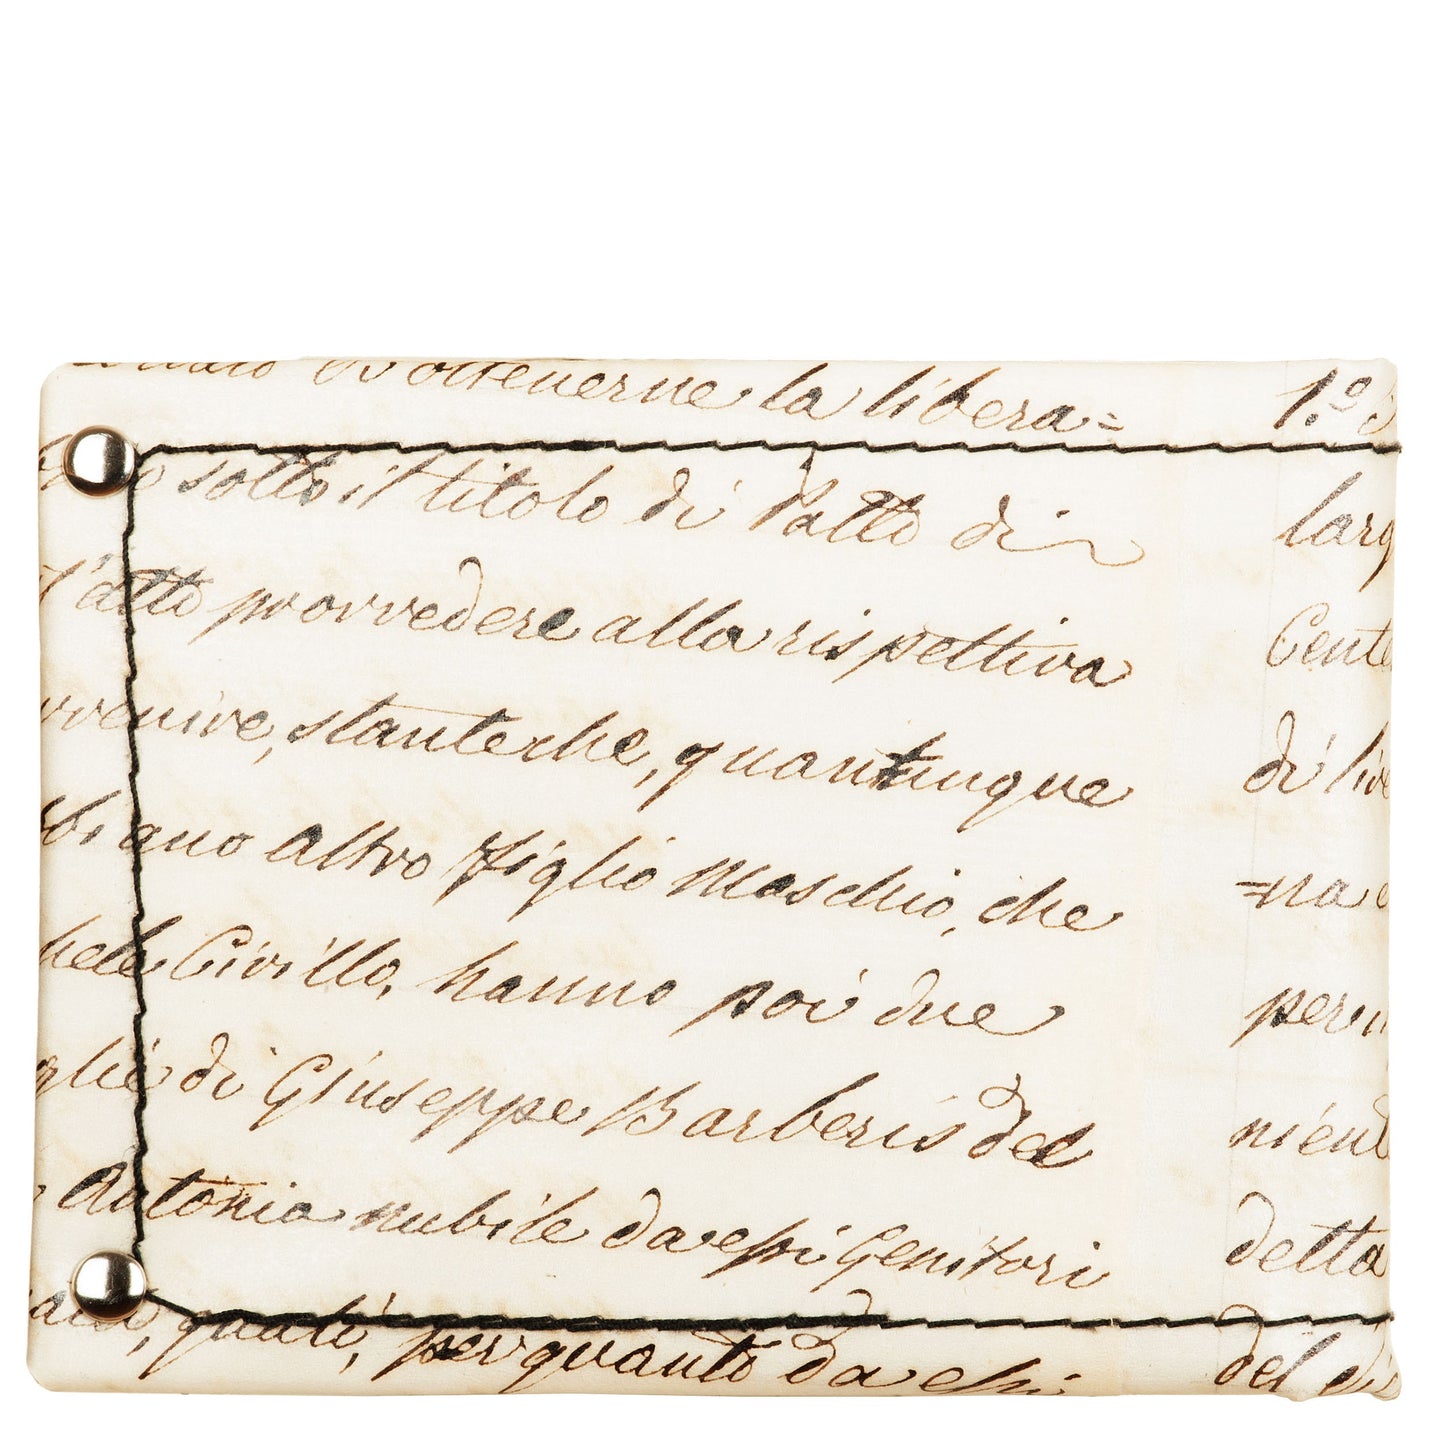 ottenerne la libera=
sotto il titolo di Patto di
l'atto provvedere alla rispettiva
vvenire, stanteche, quantunque
bbiano altro Figlio Maschio, che
Cirillo, hanno poi due
glie di Giuseppe Barberis del
Antonia nubile da essi Genitori
quali, per quanto da essi
1.º
larg
Cente
di live
=na
per
nient
detta
del di